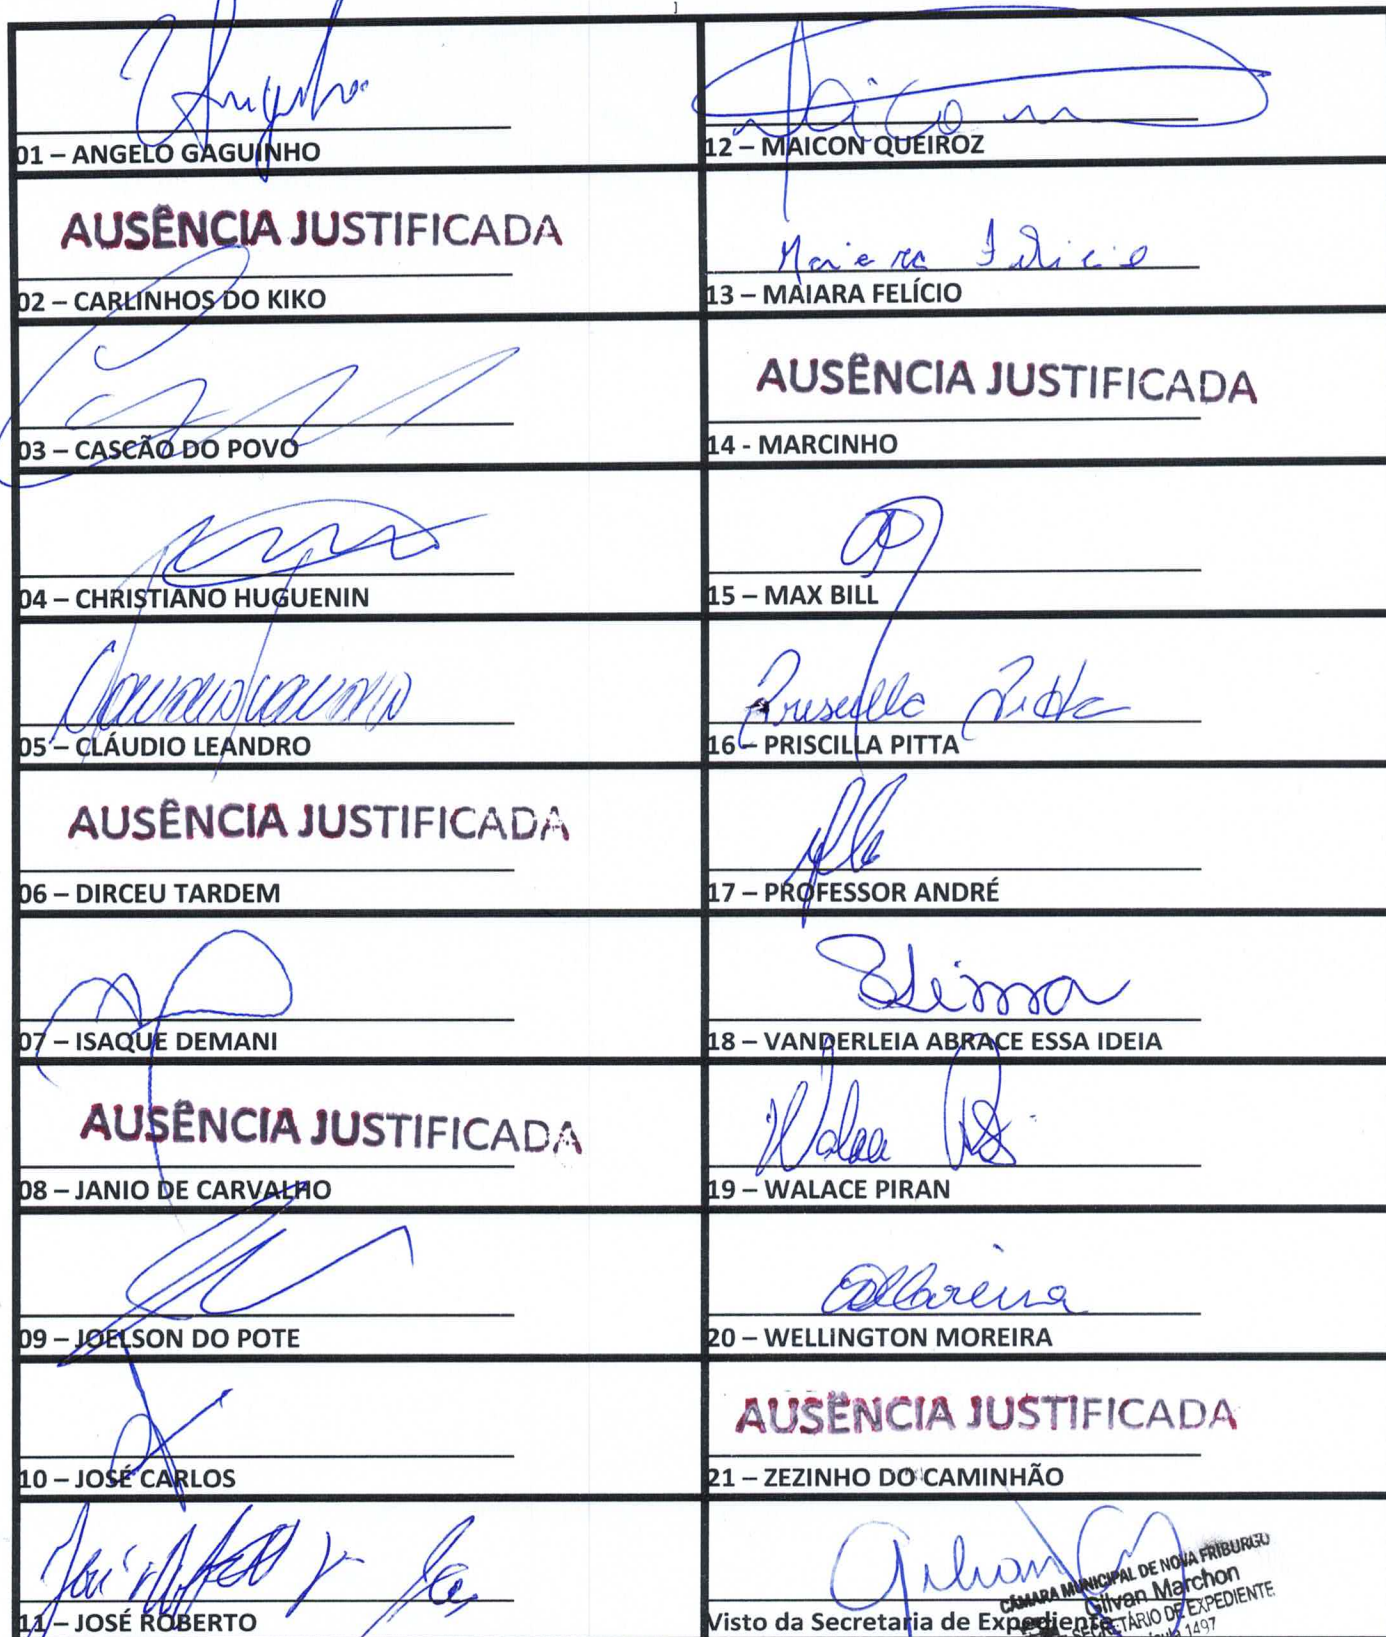 Angelo
01 – ANGELO GAGUINHO
AUSÊNCIA JUSTIFICADA
02 – CARLINHOS DO KIKO
03 – CASCÃO DO POVO
04 – CHRISTIANO HUGUENIN
05 – CLÁUDIO LEANDRO
AUSÊNCIA JUSTIFICADA
06 – DIRCEU TARDEM
07 – ISAQUE DEMANI
AUSÊNCIA JUSTIFICADA
08 – JANIO DE CARVALHO
09 – JOELSON DO POTE
10 – JOSÉ CARLOS
11 – JOSÉ ROBERTO
Maicon
12 – MAICON QUEIROZ
Maiara Felicio
13 – MAIARA FELÍCIO
AUSÊNCIA JUSTIFICADA
14 - MARCINHO
15 – MAX BILL
Priscilla Pitta
16 – PRISCILLA PITTA
17 – PROFESSOR ANDRÉ
18 – VANDERLEIA ABRACE ESSA IDEIA
Walace
19 – WALACE PIRAN
20 – WELLINGTON MOREIRA
AUSÊNCIA JUSTIFICADA
21 – ZEZINHO DO CAMINHÃO
Gilvan
Visto da Secretaria de Expediente
CÂMARA MUNICIPAL DE NOVA FRIBURGO
Gilvan Marchon
SECRETÁRIO DE EXPEDIENTE
1497